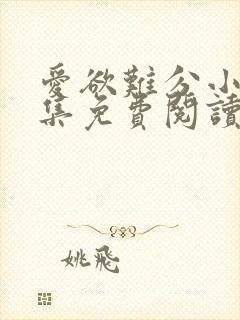 愛欲難分小
集免費閱讀
姚飛